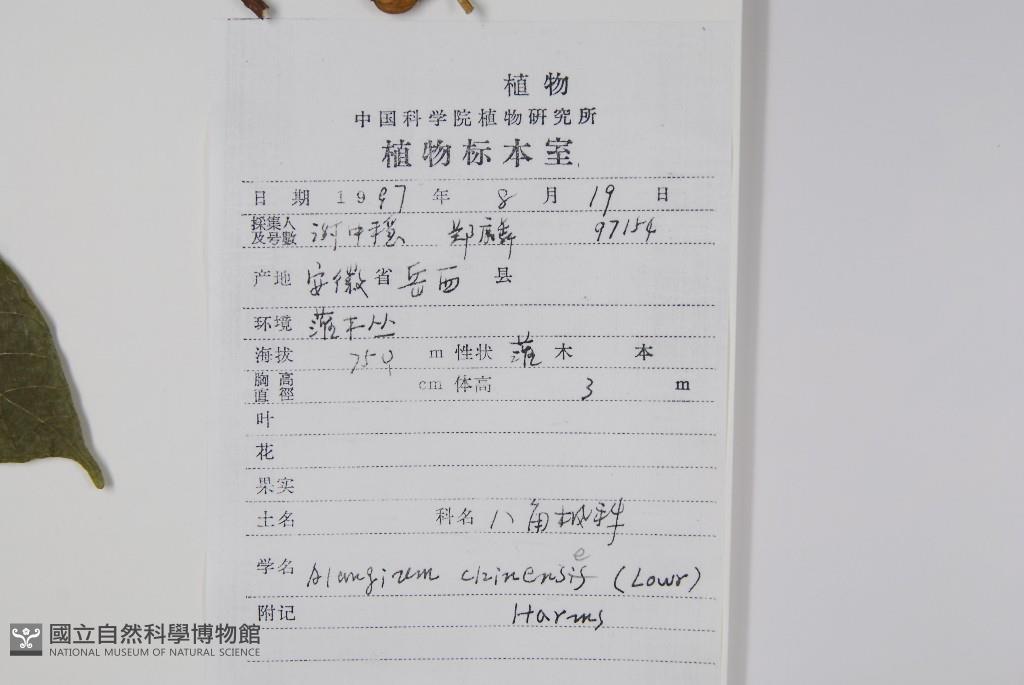 植物
中国科学院植物研究所
植物标本室
日期 1997年 8月 19日
採集人及号數 谢中稳 郑 97154
产地 安徽省岳西县
环境 灌木丛
海拔 750 m 性状 灌木 本
胸高直徑 cm 体高 3 m
叶
花
果实
土名 科名 八角枫科
学名 Alangium chinensis e (Lour)
附记 Harms
國立自然科學博物館
NATIONAL MUSEUM OF NATURAL SCIENCE